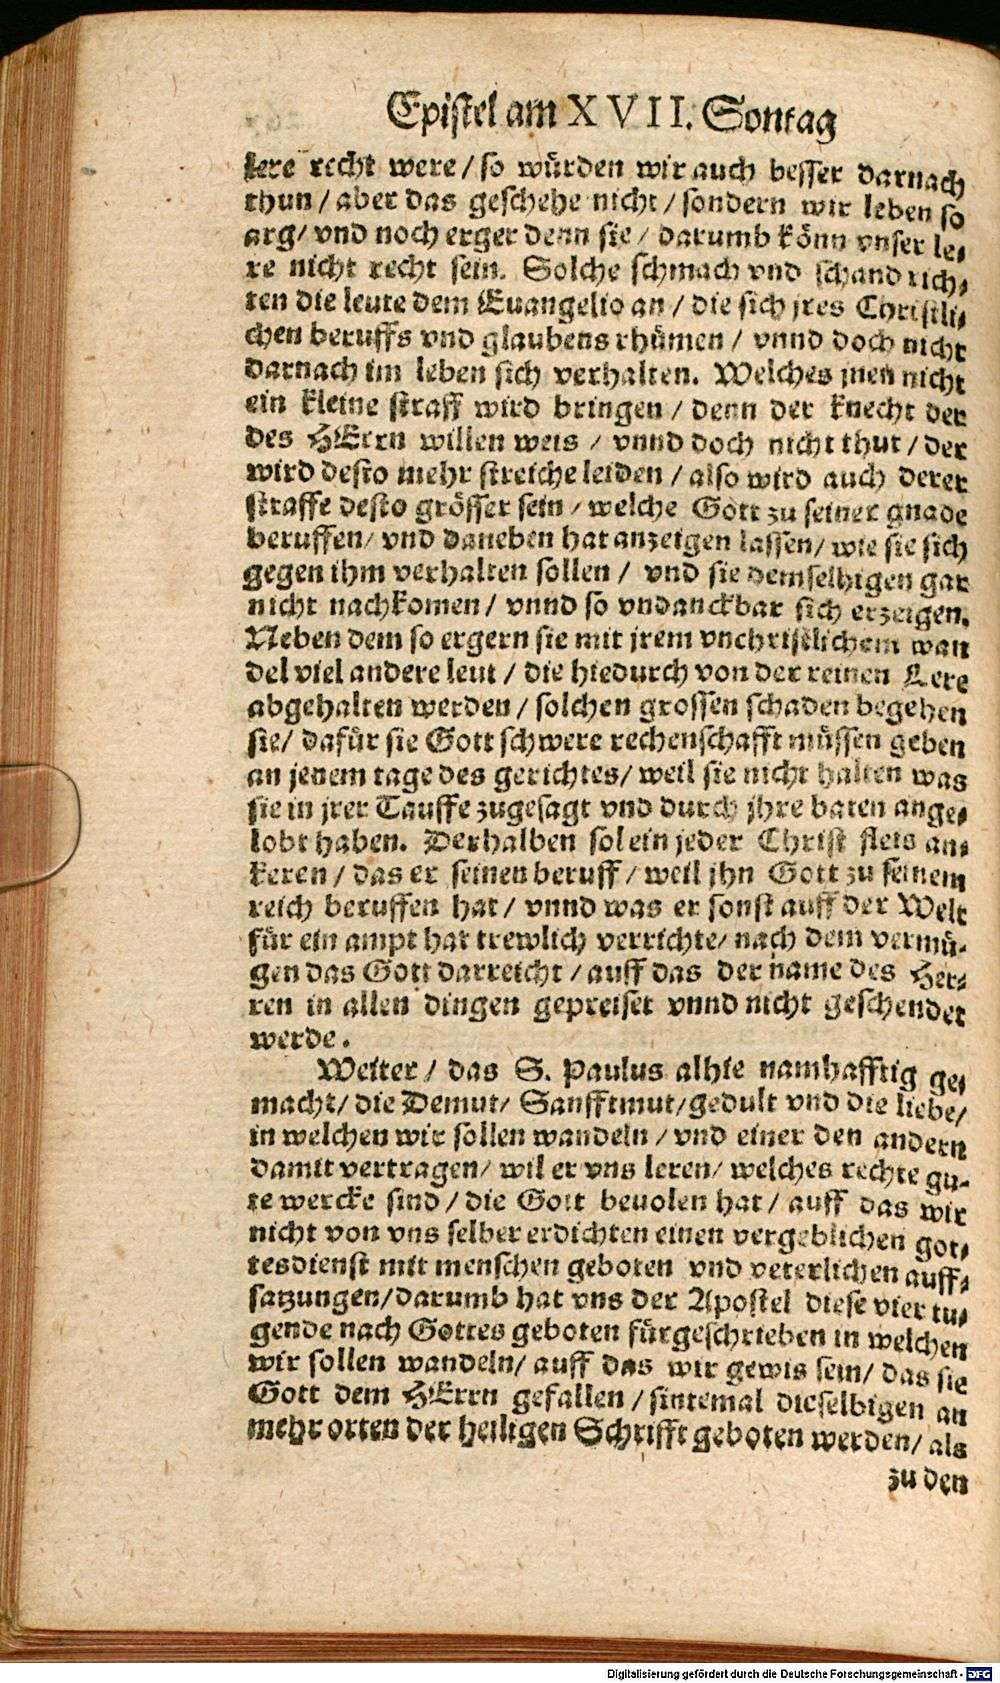 Epistel am XVII. Sontag
lere recht were / so würden wir auch besser darnach
thun / aber das geschehe nicht / sondern wir leben so
arg / vnd noch erger denn sie / darumb könn vnser le-
re nicht recht sein. Solche schmach vnd schand rich-
ten die leute dem Euangelio an / die sich jres Christli-
chen beruffs vnd glaubens rhümen / vnnd doch nicht
darnach im leben sich verhalten. Welches jnen nicht
ein kleine straff wird bringen / denn der knecht der
des HErrn willen weis / vnnd doch nicht thut / der
wird desto mehr streiche leiden / also wird auch derer
straffe desto grösser sein / welche Gott zu seiner gnade
beruffen / vnd daneben hat anzeigen lassen / wie sie sich
gegen ihm verhalten sollen / vnd sie demselbigen gar
nicht nachkomen / vnnd so vndanckbar sich erzeigen.
Neben dem so ergern sie mit jrem vnchristlichem wan
del viel andere leut / die hiedurch von der reinen Lere
abgehalten werden / solchen grossen schaden begehen
sie / dafür sie Gott schwere rechenschafft müssen geben
an jenem tage des gerichtes / weil sie nicht halten was
sie in jrer Tauffe zugesagt vnd durch jhre baten ange-
lobt haben. Derhalben sol ein jeder Christ fleis an-
keren / das er seinen beruff / weil jhn Gott zu seinem
reich beruffen hat / vnnd was er sonst auff der Welt
für ein ampt hat trewlich verrichte / nach dem vermü-
gen das Gott darreicht / auff das der name des Her-
ren in allen dingen gepreiset vnnd nicht geschendet
werde.
Weiter / das S. Paulus alhie namhafftig ge-
macht / die Demut / Sanfftmut / gedult vnd die liebe /
in welchen wir sollen wandeln / vnd einer den andern
damit vertragen / wil er vns leren / welches rechte gu-
te wercke sind / die Gott beuolen hat / auff das wir
nicht von vns selber erdichten einen vergeblichen got-
tesdienst mit menschen geboten vnd veterlichen auff-
satzungen / darumb hat vns der Apostel diese vier tu-
gende nach Gottes geboten fürgeschrieben in welchen
wir sollen wandeln / auff das wir gewis sein / das sie
Gott dem HErrn gefallen / sintemal dieselbigen an
mehr orten der heiligen Schrifft geboten werden / als
zu den
Digitalisierung gefördert durch die Deutsche Forschungsgemeinschaft - DFG